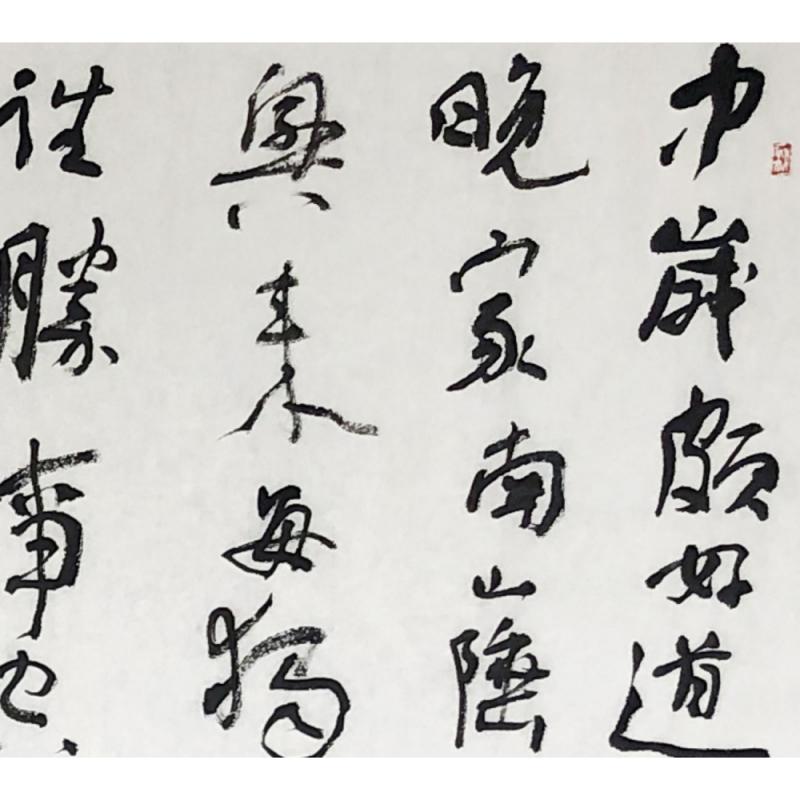 中歲頗好道
晚家南山陲
興來每獨
往勝事空